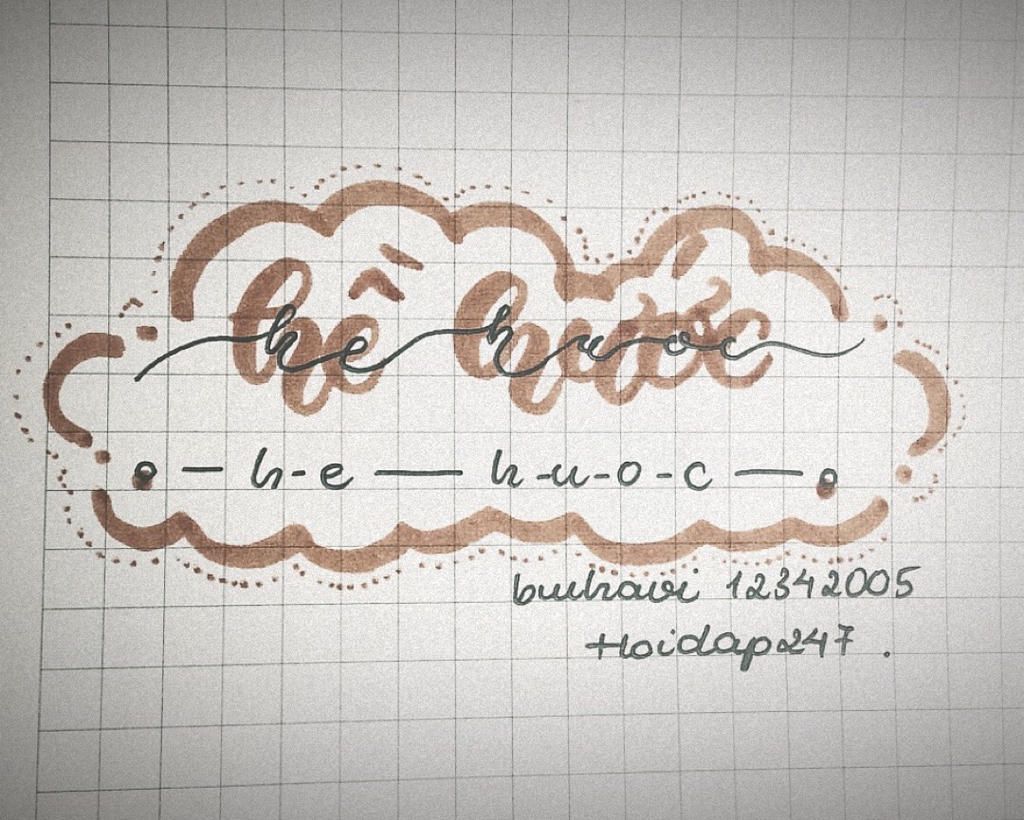 hề hước
he huoc
o — h-e — h-u-o-c — o
buihavi 12342005
Hoidap247.